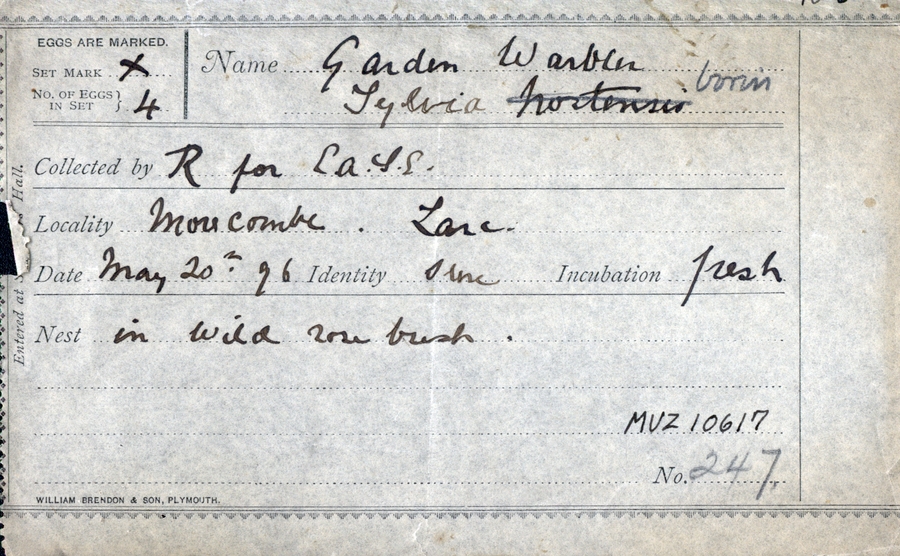 EGGS ARE MARKED.
SET MARK X
NO. OF EGGS IN SET } 4
Name Garden Warbler
Sylvia hortensis borin
Collected by R for
Locality Morecombe. Lanc.
Date May 20th 96 Identity Sure Incubation fresh
Nest in wild rose bush.
MUZ 10617
No. 247
WILLIAM BRENDON & SON, PLYMOUTH.
Entered at Hall.